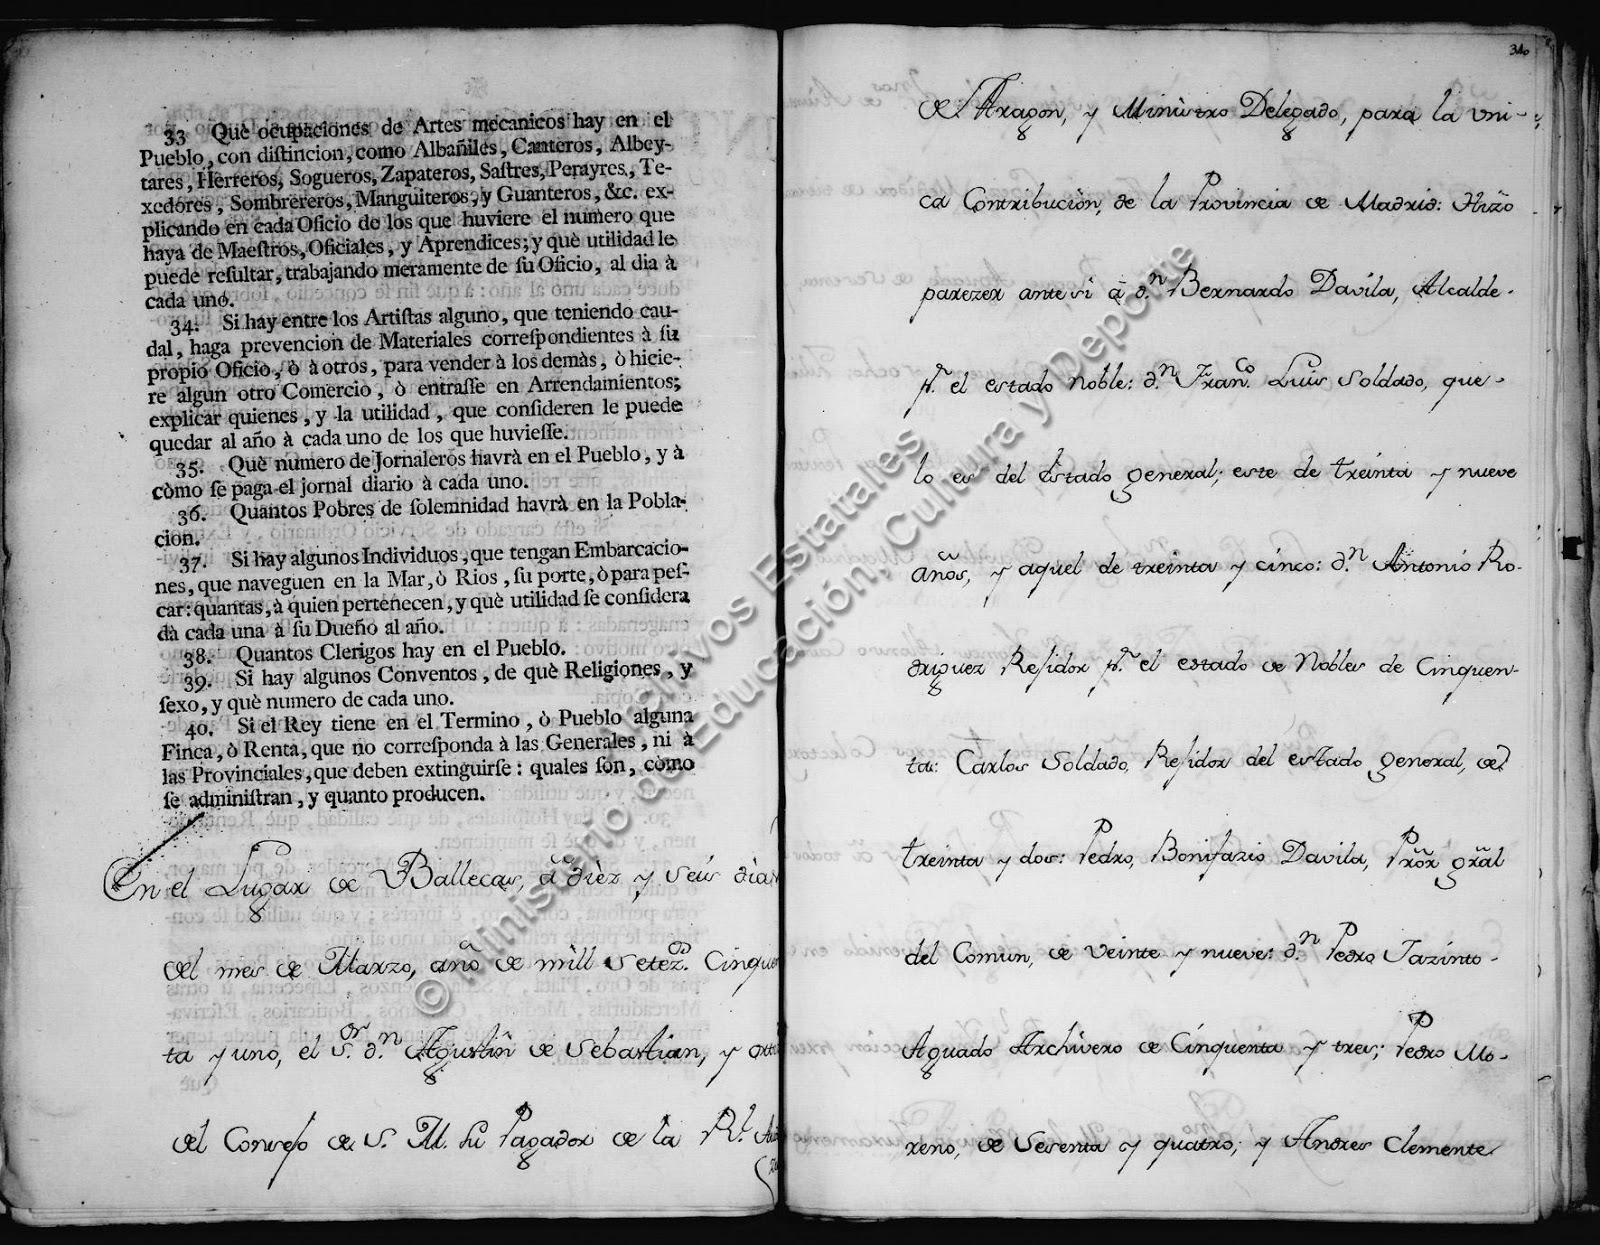 33 Què ocupaciones de Artes mecanicos hay en el
Pueblo, con distincion, como Albañiles, Canteros, Albey-
tares, Herreros, Sogueros, Zapateros, Sastres, Perayres, Te-
xedores, Sombrereros, Manguiteros, y Guanteros, &c. ex-
plicando en cada Oficio de los que huviere el numero que
haya de Maestros, Oficiales, y Aprendices; y què utilidad le
puede resultar, trabajando meramente de su Oficio, al dia à
cada uno.
34. Si hay entre los Artistas alguno, que teniendo cau-
dal, haga prevencion de Materiales correspondientes à su
propio Oficio, ò à otros, para vender à los demàs, ò hicie-
re algun otro Comercio, ò entrasse en Arrendamientos;
explicar quienes, y la utilidad, que consideren le puede
quedar al año à cada uno de los que huviesse.
35. Què numero de Jornaleros havrà en el Pueblo, y à
còmo se paga el jornal diario à cada uno.
36. Quantos Pobres de solemnidad havrà en la Pobla-
cion.
37. Si hay algunos Individuos, que tengan Embarcacio-
nes, que naveguen en la Mar, ò Rios, su porte, ò para pes-
car: quantas, à quien pertenecen, y què utilidad se considera
dà cada una à su Dueño al año.
38. Quantos Clerigos hay en el Pueblo.
39. Si hay algunos Conventos, de què Religiones, y
sexo, y què numero de cada uno.
40. Si el Rey tiene en el Termino, ò Pueblo alguna
Finca, ò Renta, que no corresponda à las Generales, ni à
las Provinciales, que deben extinguirse: quales son, còmo
se administran, y quanto producen.
En el Lugar de Ballecas, à diez y seis dias
del mes de Marzo, año de mill setezos. Cinquen
ta y uno, el Sor. dn Agustin de Sebastian, y
del Consejo de S. M. su Pagador de la Rl.
340
de Aragon, y Ministro Delegado, para la vni-
ca Contribucion, de la Provincia de Madrid: Hizo
parezer ante si à dn Bernardo Davila, Alcalde
pr. el estado noble: dn Franco. Luis Soldado, que
lo es del Estado general; este de treinta y nueve
años, y aquel de treinta y cinco: dn Antonio Ro-
driguez Residor pr. el estado de Nobles de Cinquen-
ta: Carlos Soldado, Residor del estado general, de
treinta y dos: Pedro, Bonifazio Davila, Pror gral
del Comun, de veinte y nueve: dn Pedro Jazinto
Aguado Archivero de Cinquenta y tres; Pedro Mo-
reno, de Sesenta y quatro; y Andres Clemente
© Ministerio de Educación, Cultura y Deporte
Archivos Estatales